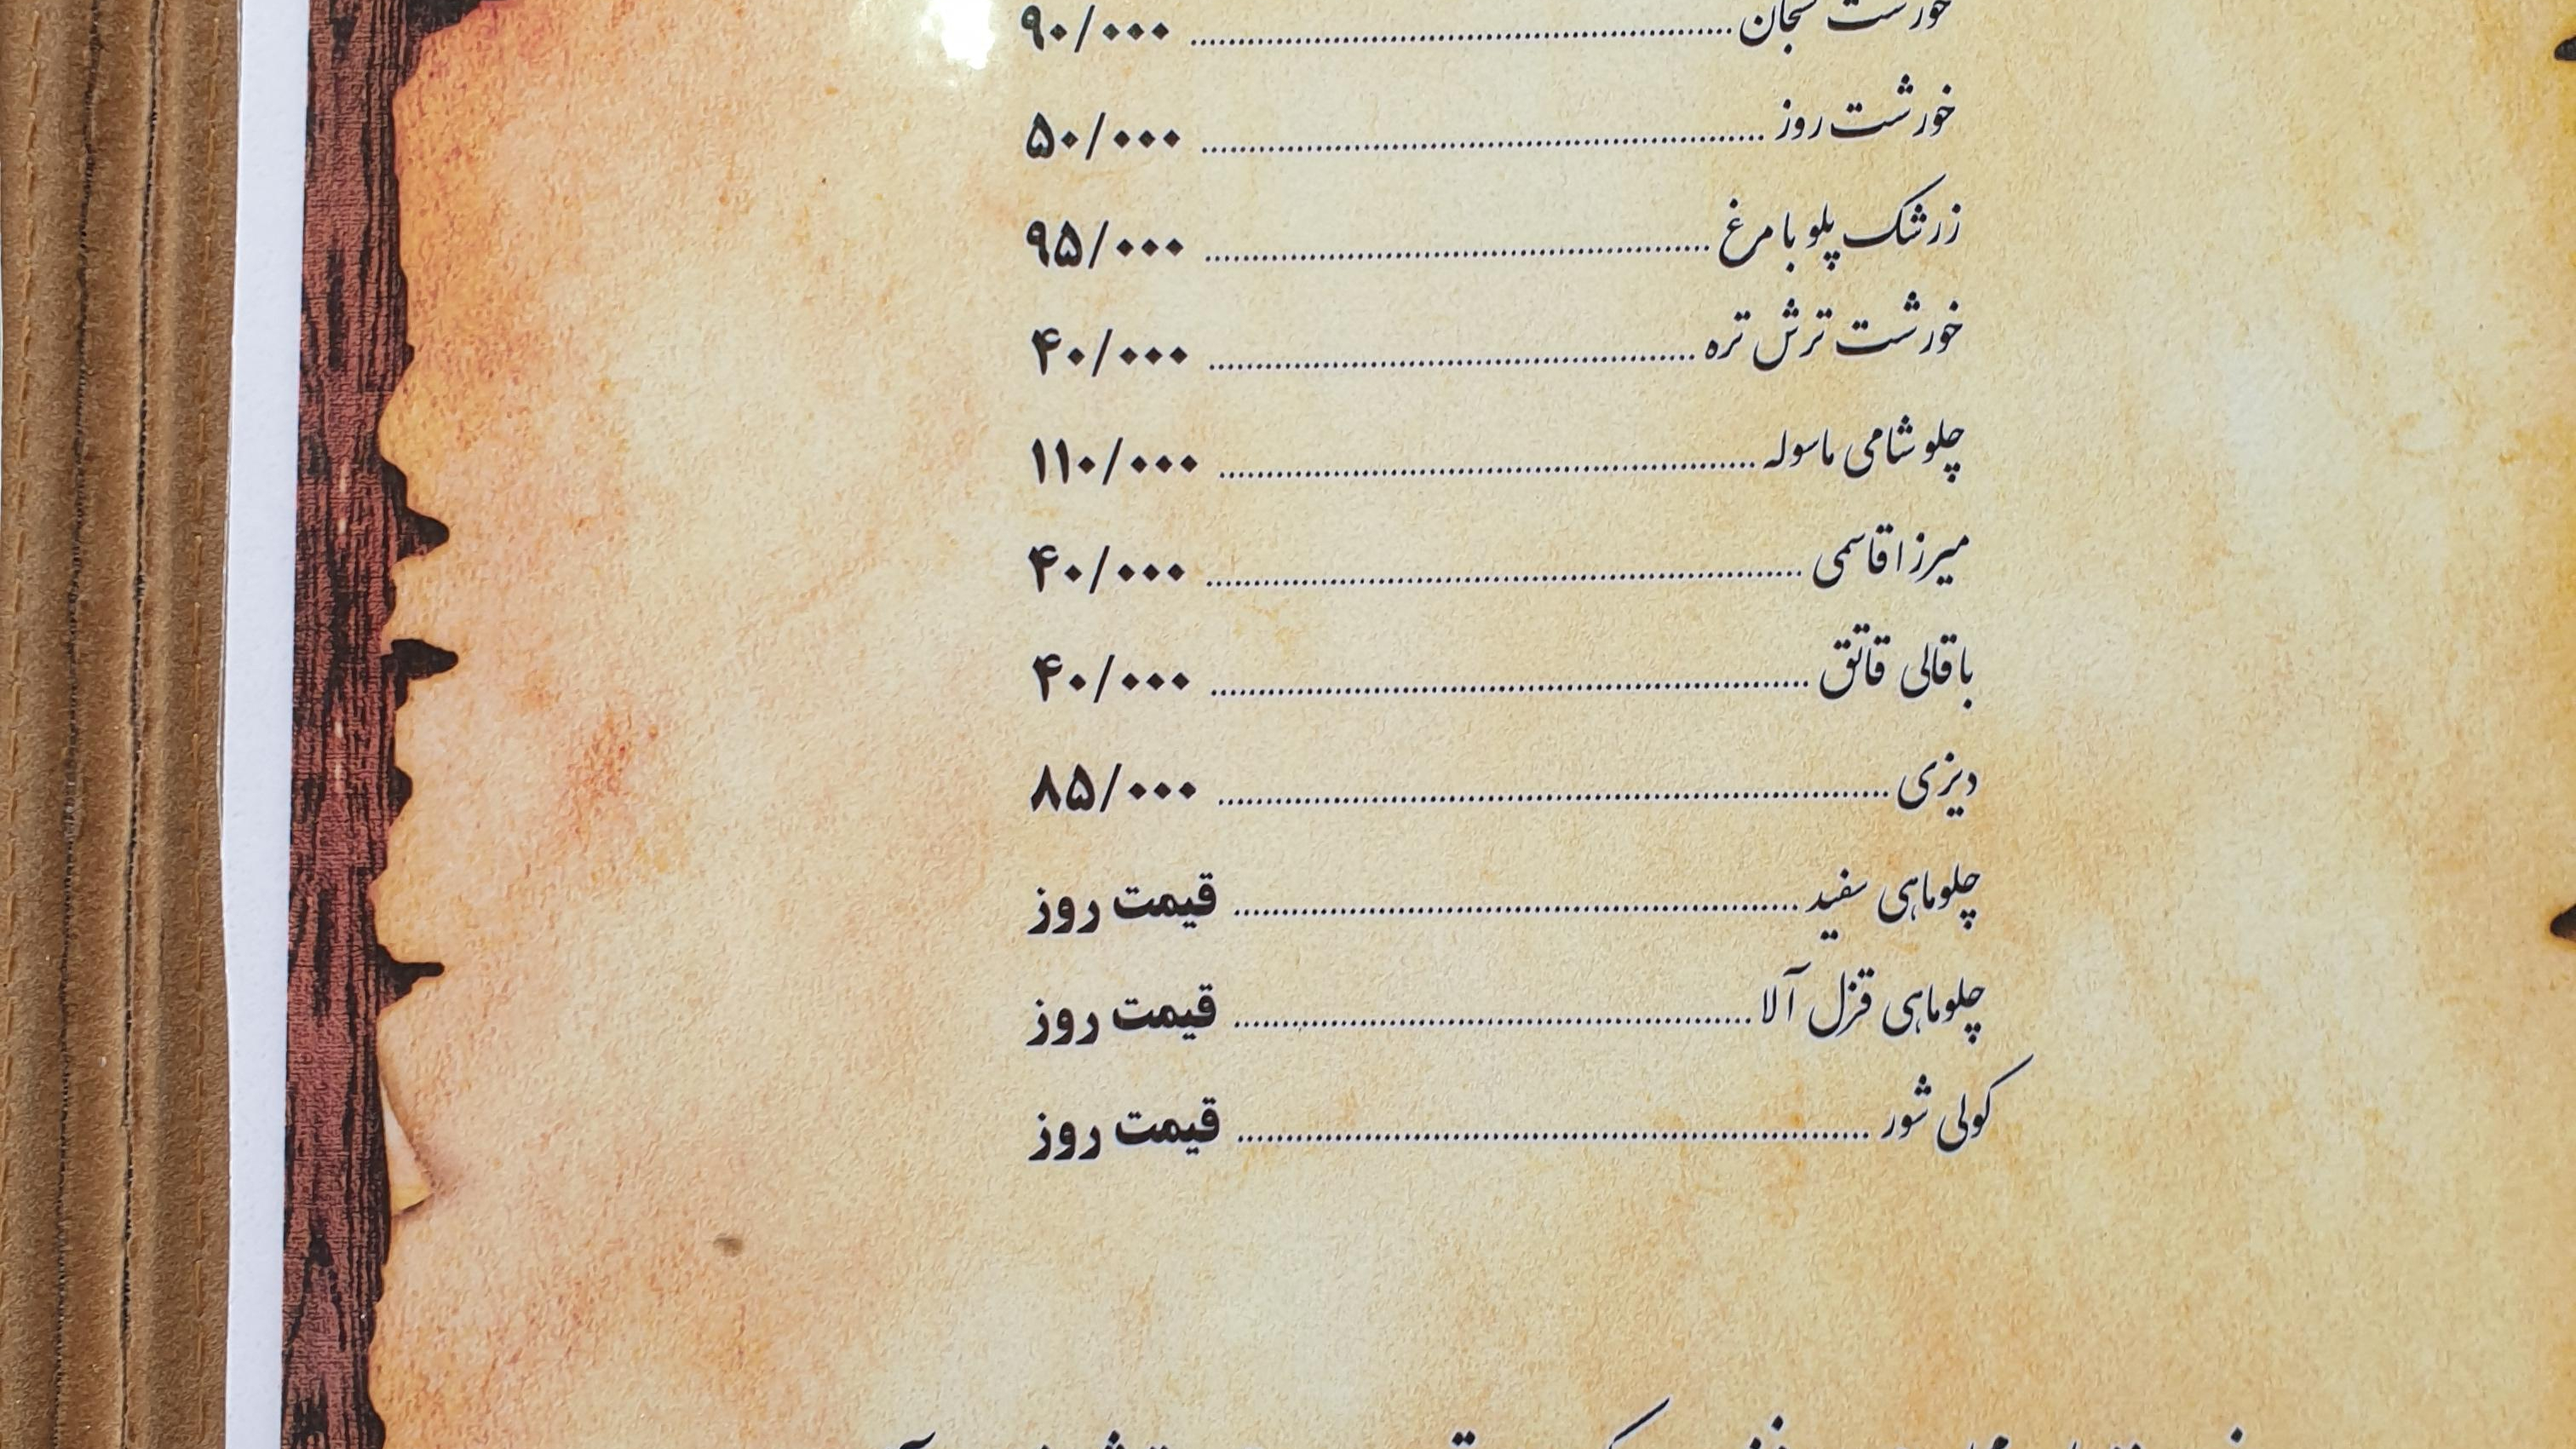 خورشت ........ ۹۰/۰۰۰
خورشت روز ........ ۵۰/۰۰۰
زرشک پلو با مرغ ........ ۹۵/۰۰۰
خورشت ترش تره ........ ۴۰/۰۰۰
چلو شامی ماسوله ........ ۱۱۰/۰۰۰
میرزا قاسمی ........ ۴۰/۰۰۰
باقالی قاتق ........ ۴۰/۰۰۰
دیزی ........ ۸۵/۰۰۰
چلوماهی سفید ........ قیمت روز
چلوماهی قزل آلا ........ قیمت روز
کولی شور ........ قیمت روز